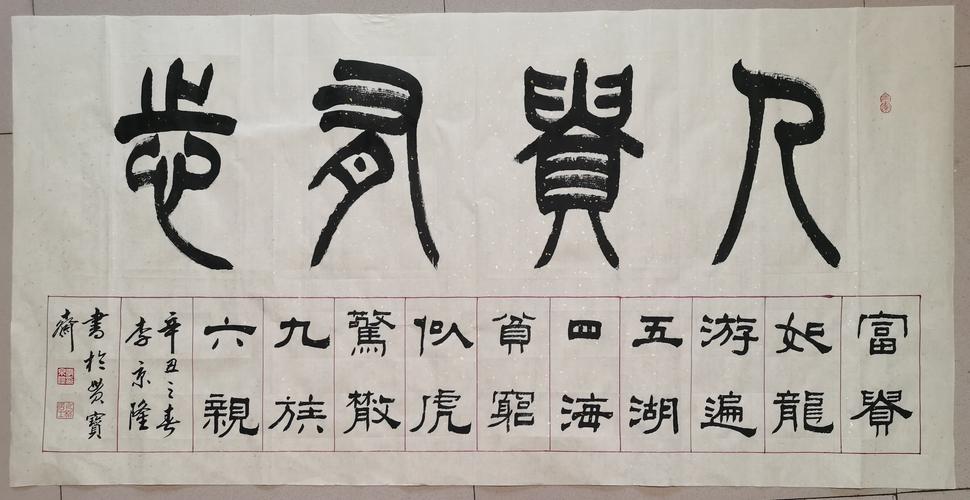 人貴有志
富貴
如龍
游遍
五湖
四海
貧窮
似虎
驚散
九族
六親
辛丑之春
李京隆
書於寶
齋